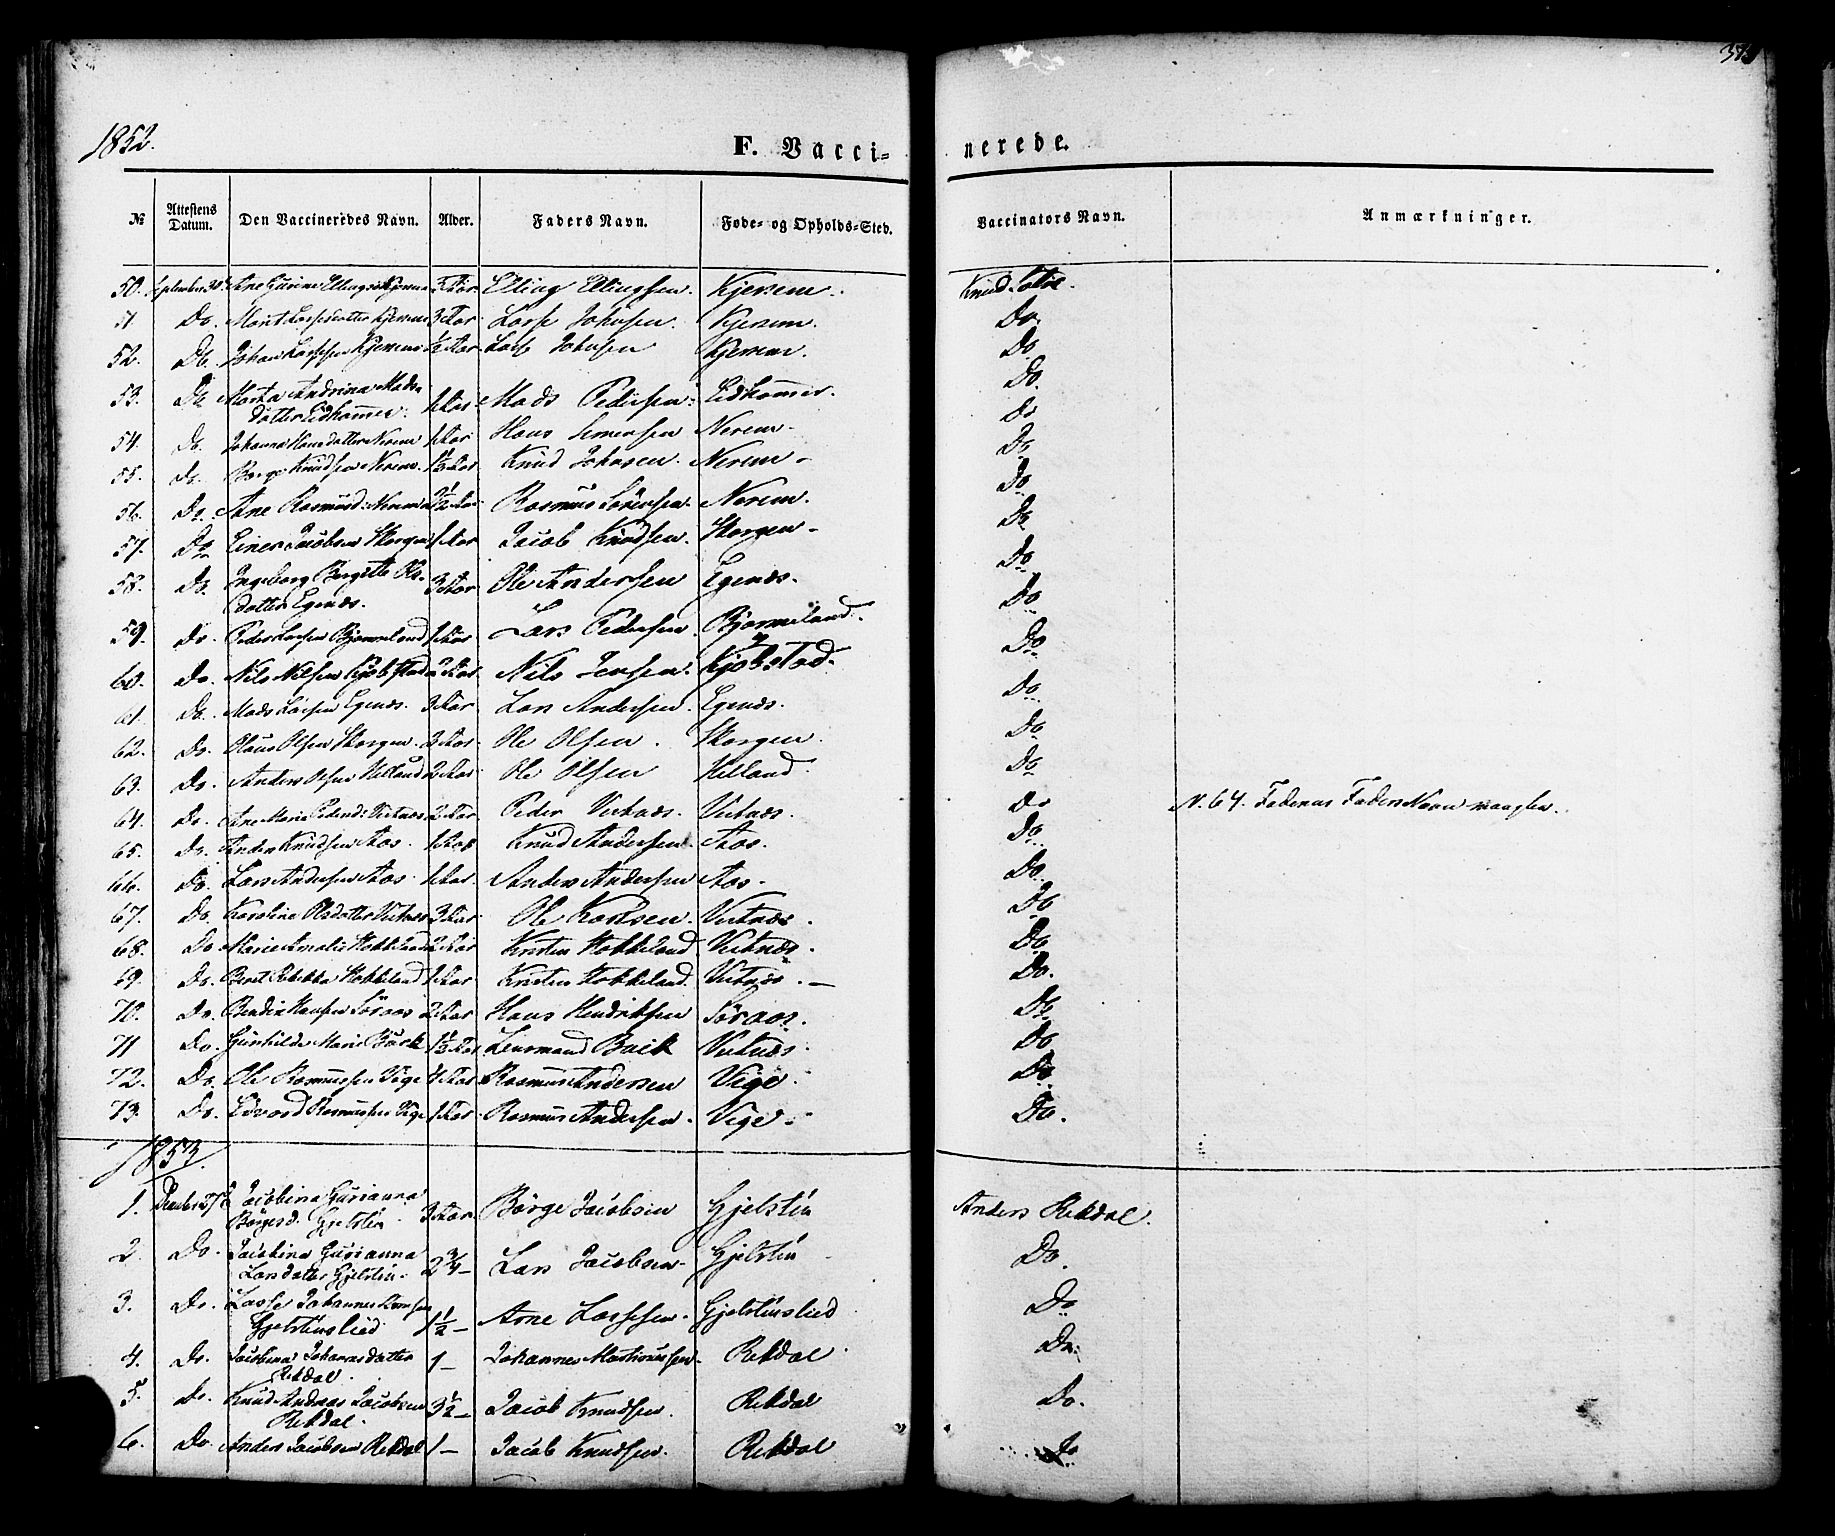 373
1852.
F. Vacci- nerede.
№ Attestens Datum. Den Vaccineredes Navn. Alder. Faders Navn. Føde- og Opholds-Sted. Vaccinators Navn. Anmærkninger.
50. September 30 Ane Gurine Ellingsd Kjerem Aar Elling Ellingsen. Kjerem. Knud Solie.
51. Do. Marit Lassedatter Kjerem 3 Aar Lasse Johnsen. Kjerem. Do.
52. Do. Johan Lassesen Kjerem ½ Aar Lasse Johnsen Kjerem. Do
53. Do Marta Andrina Mads-
datter Eidhammer. 1 Aar Mads Pedersen. Eidhammer. Do.
54. Do. Johanna Hansdatter Nerem 1 Aar Hans Simensen Nerem. Do
55. Do. Børge Knudsen Nerem. 1½ Aar Knud Johnsen. Nerem Do
56. Do. Ane Rasmusd: Nerem 2½ Aar Rasmus Sörensen. Nerem. Do
57. Do Einer Jacobsen Skorgen 1 Aar Jacob Knudsen. Skorgen Do
58. Do. Ingeborg Birgitte Ols-
datter Egenæs. 3 Aar Ole Andersen Egenæs. Do
59. Do. Peder Larsen Bjermeland 1 Aar Lars Pedersen Bjermeland. Do
60. Do. Nils Nilsen Kjöbstad 2 Aar Nils Jensen. Kjöbstad. Do
61. Do. Mads Larsen Egenæs. 3 Aar Lars Andersen. Egenæs. Do
62. Do. Olaus Olsen Skorgen. 3 Aar. Ole Olsen. Skorgen. Do
63. Do. Anders Olsen Helland 2 Aar Ole Olsen Helland. Do
64. Do. Ane Maria Pedersd: Vestnæs 2 Aar Peder Vestnæs. Vestnæs. Do N. 64. Faderens Faders Navn mangler.
65. Do. Anders Knudsen Aas. 1 Aar Knud Andersen Aas. Do
66. Do. Lars Andersen Aas 1 Aar. Anders Andersen Aas. Do.
67. Do. Karoline Olsdatter Vestnæs 3 Aar Ole Karlsen. Vestnæs. Do
68. Do Marie Amalie Stokkeland 2 Aar Kristen Stokkeland Vestnæs. Do
69. Do. Beret Rebekka Stokkeland 1 Aar Kristen Stokkeland. Vestnæs. Do.
70. Do. Hansen Söraas 2 Aar Hans Hendriksen Söraas. Do
71 Do. Gunhilde Marie Back 1½ Aar Lensmand Back Vestnæs. Do
72. Do. Ole Rasmussen Vige 4 Aar Rasmus Andersen Vige Do
73. Do. Edvard Rasmussen Vige 1 Aar Rasmus Andersen. Vige. Do.
1853.
1. December 27 Jacobina Gurianna
Börgesd. Gjelstén 3 Aar. Börge Jacobsen Gjelstén Anders Rekdal.
2. Do. Jacobina Gurianna
Larsdatter Gjelstén. 2¾ Lars Jacobsen Gjelstén Do.
3. Do. Lasse Johannes Arnesen
Gjelstenslied 1½ Arne Lassesen. Gjelstenslied Do
4. Do. Jacobina Johannesdatter
Rekdal. 1 Johannes Martinussen. Rekdal. Do.
5. Do. Knud Andreas Jacobsen
Rekdal. 3½ Jacob Knudsen. Rekdal Do.
6. Do. Anders Jacobsen Rekdal 1 Jacob Knudsen. Rekdal Do